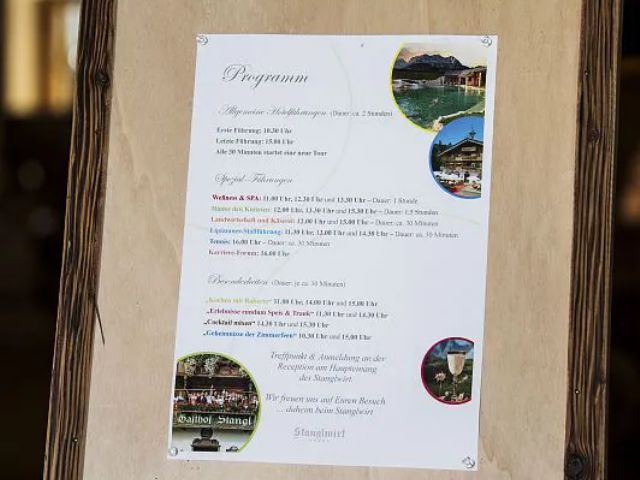 Programm
Allgemeine Hotelführungen (Dauer: ca. 2 Stunden)
Erste Führung: 10.30 Uhr
Letzte Führung: 15.00 Uhr
Alle 30 Minuten startet eine neue Tour
Spezial-Führungen
Wellness & SPA: 11.00 Uhr, 12.30 Uhr und 13.30 Uhr – Dauer: 1 Stunde
Hinter den Kulissen: 12.00 Uhr, 13.30 Uhr und 15.30 Uhr – Dauer: 1,5 Stunden
Landwirtschaft und Käserei: 12.00 Uhr und 15.00 Uhr – Dauer: ca. 30 Minuten
Lipizzaner-Stallführung: 11.30 Uhr, 13.00 Uhr und 14.30 Uhr – Dauer: ca. 30 Minuten
Tennis: 16.00 Uhr – Dauer: ca. 30 Minuten
Karriere-Forum: 16.00 Uhr
Besonderheiten (Dauer: je ca. 30 Minuten)
„Kochen mit 11.00 Uhr, 14.00 Uhr und 15.00 Uhr
„Erlebnisse rundum Speis & Trank“ 11.30 Uhr und 14.30 Uhr
„Cocktail mixen“ 14.30 Uhr und 15.30 Uhr
„Geheimnisse der Zimmerfeen“ 10.30 Uhr und 15.00 Uhr
Treffpunkt & Anmeldung an der
Reception am Haupteingang
des Stanglwirt.
Wir freuen uns auf Euren Besuch
... daheim beim Stanglwirt
Stanglwirt
Gasthof Stangl